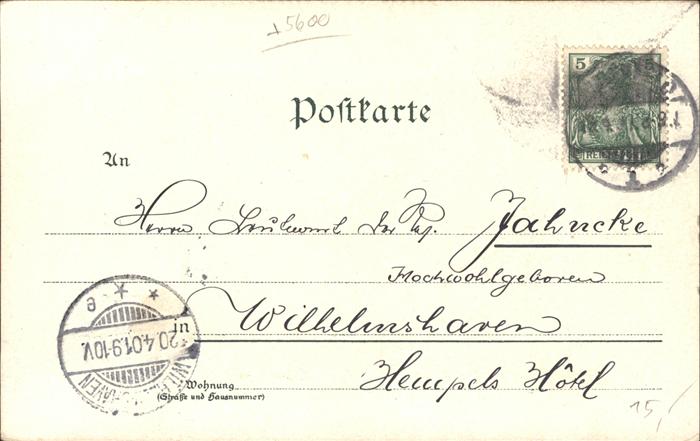 +5600
5 5
REICHSPOST
Postkarte
An
Herrn Leutnant der Res. Jahncke
Hochwohlgeboren
in Wilhelmshaven
Wohnung
(Straße und Hausnummer)
Hempels Hôtel
WILHELMSHAVEN
20.4.01.9-10V.
* * e
15,